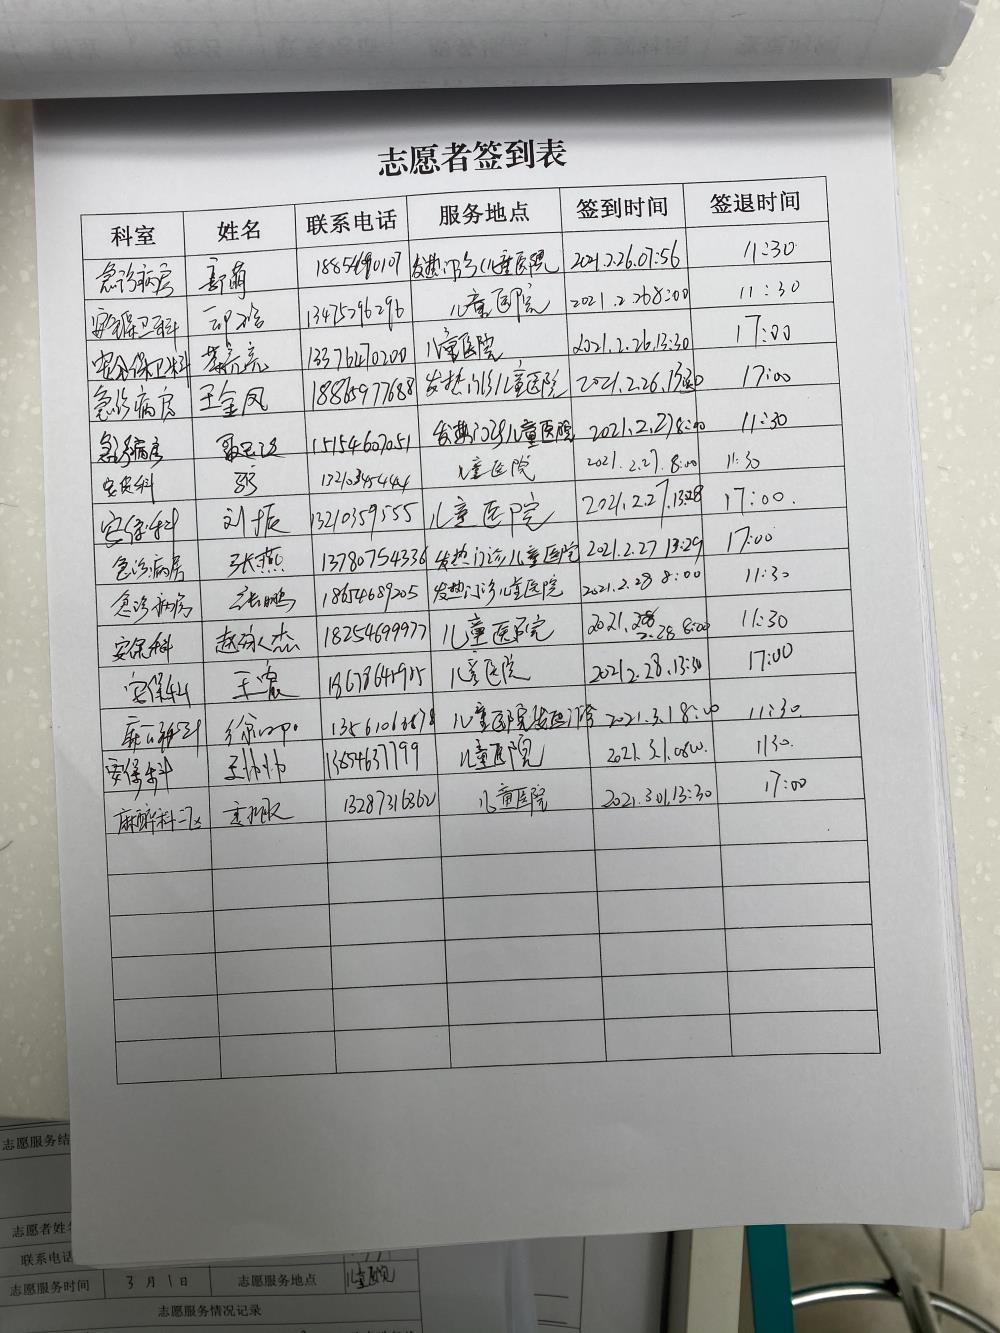 志愿者签到表
科室 姓名 联系电话 服务地点 签到时间 签退时间
急诊病房 萌 发热门诊儿童医院 2021.2.26.07:56 11:30
安全保卫科 13475296296 儿童医院 2021.2.26 8:00 11:30
安全保卫科 亮亮 13376470200 儿童医院 2021.2.26.13:30 17:00
急诊病房 王金凤 18865977688 发热门诊儿童医院 2021.2.26.13:30 17:00
急诊病房 15154607051 发热门诊儿童医院 2021.2.27 8:00 11:30
儿童医院 2021.2.27.8:00 11:30
安保科 刘振 13210359555 儿童医院 2021.2.27.13:28 17:00.
急诊病房 张燕 13780754336 发热门诊儿童医院 2021.2.27 13:29 17:00
急诊病房 张鹏 18654689205 发热门诊儿童医院 2021.2.28 8:00 11:30
安保科 赵杰 18254699977 儿童医院 2021.2.28 8:00 11:30
安保科 王震 儿童医院 2021.2.28.13:30 17:00
徐 儿童医院 2021.3.1 8:00 11:30.
安保科 王帅帅 13854637799 儿童医院 2021.3.1.0800. 1130.
麻醉科一区 13287316362 儿童医院 2021.3.01.13:30 17:00
志愿服务结
志愿者姓名
联系电话
志愿服务时间 3月1日 志愿服务地点 儿童医院
志愿服务情况记录